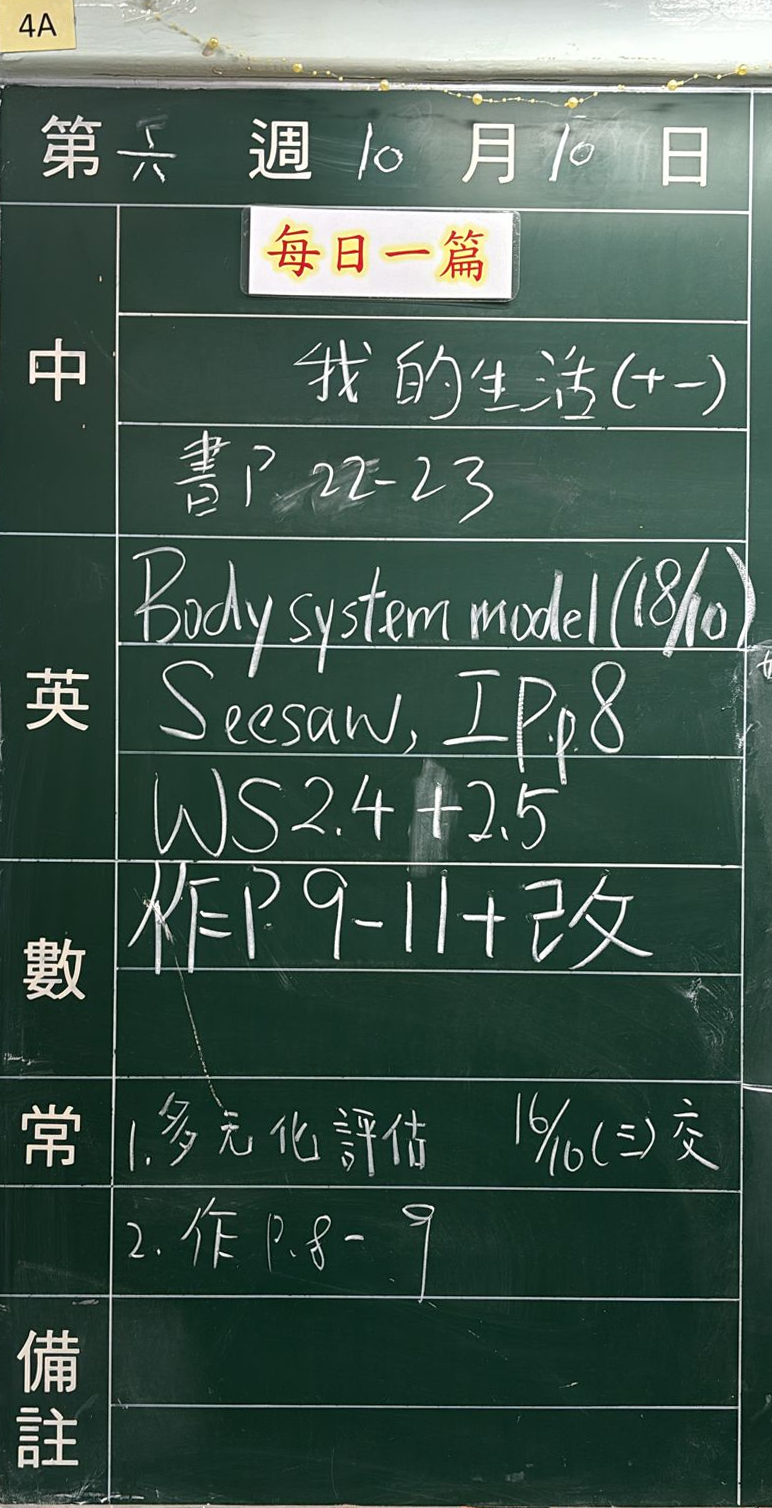 4A
第六週10月10日
每日一篇
中
我的生活(十一)
書P.22-23
英
Body system model (18/10)
Seesaw, IP p.8
WS 2.4 + 2.5
數
作P.9-11+改
常
1.多元化評估 16/10(三)交
2.作P.8-9
備註